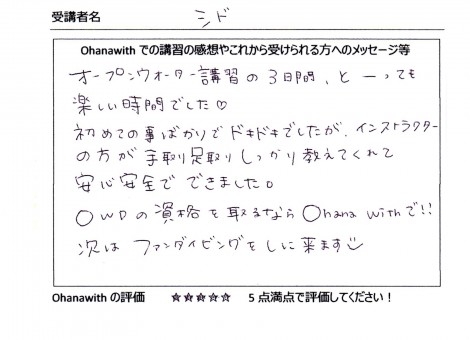 受講者名 シド
Ohanawith での講習の感想やこれから受けられる方へのメッセージ等
オープンウォーター講習の3日間、とーっても
楽しい時間でした♡
初めての事ばかりでドキドキでしたが、インストラクター
の方が手取り足取りしっかり教えてくれて
安心安全でできました。
OWDの資格を取るならOhana withで!!
次はファンダイビングをしに来ます
Ohanawith の評価 ☆☆☆☆☆ 5 点満点で評価してください！